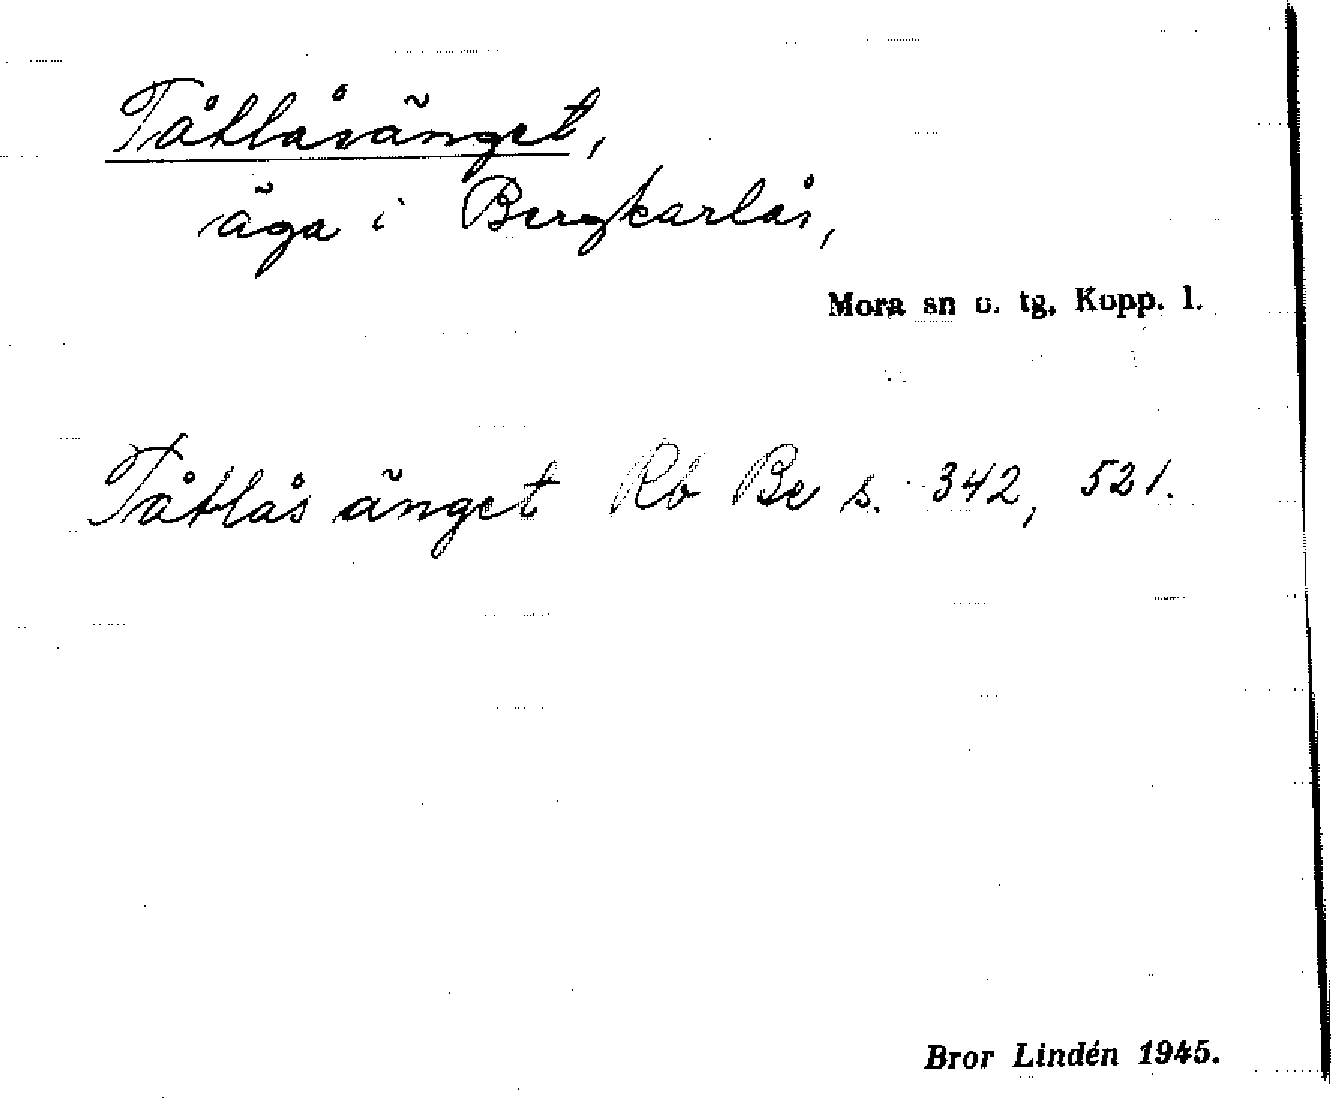 Tåtlåsänget,
äga i Bergkarlås,
Mora sn o. tg, Kopp. l.
Tåtlås änget Rb Be s. 342, 521.
Bror Lindén 1945.